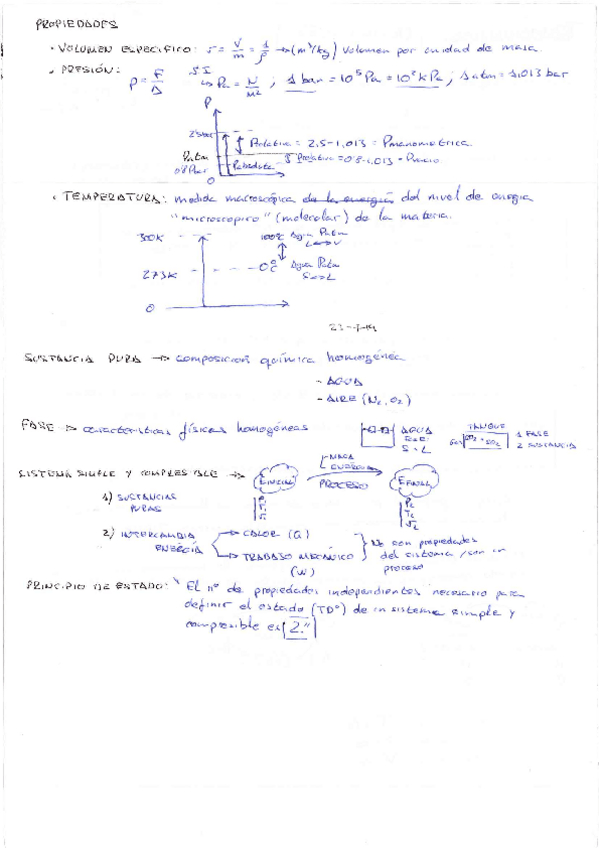 PROPIEDADES
· VOLUMEN ESPECIFICO: v = V/m = 1/ρ → (m³/kg) Volumen por unidad de masa.
· PRESIÓN: P = F/A SI ↳ Pa = N/M² ; 1 bar = 10⁵ Pa = 10² kPa ; 1 atm = 1.013 bar
P
2'5 bar
Prelativa = 2,5 - 1,013 = Pmanometrica.
Patm
Prelativa = 0'8 - 1.013 = Pvacio
0'8 bar
Pabsoluta
0
· TEMPERATURA: medida macroscópica de la energía del nivel de energia
"microscopico" (molecular) de la materia.
300K
100ºC Agua Patm
L↔V
273K
0ºC Agua Patm
S↔L
0
SUSTANCIA PURA → composición química homogénea
- AGUA
- AIRE (N₂, O₂)
FASE → características físicas homogéneas
AGUA
S - L
TANQUE
1 FASE
2 SUSTANCIA
SISTEMA SIMPLE Y COMPRESIBLE →
E INICIAL
MASA
ENERGIA
PROCESO
E FINAL
1) SUSTANCIAS
PURAS
P₂
T₂
V₂
2) INTERCAMBIA
ENERGÍA
→ CALOR (Q)
→ TRABAJO MECÁNICO
(W)
No son propiedades
del sistema, son un
proceso
PRINCIPIO DE ESTADO: "El nº de propiedades independientes necesario para
definir el estado (TDº) de un sistema simple y
compresible es 2."